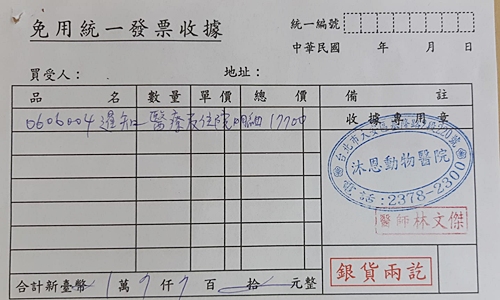 免用統一發票收據
統一編號
中華民國 年 月 日
買受人： 地址：
品名 數量 單價 總價 備註
0606004 暹知 醫療及住院明細 17700
收據專用章
沐恩動物醫院
電話:2378-2300
醫師林文傑
銀貨兩訖
合計新臺幣 1 萬 7 仟 7 百 拾 元整